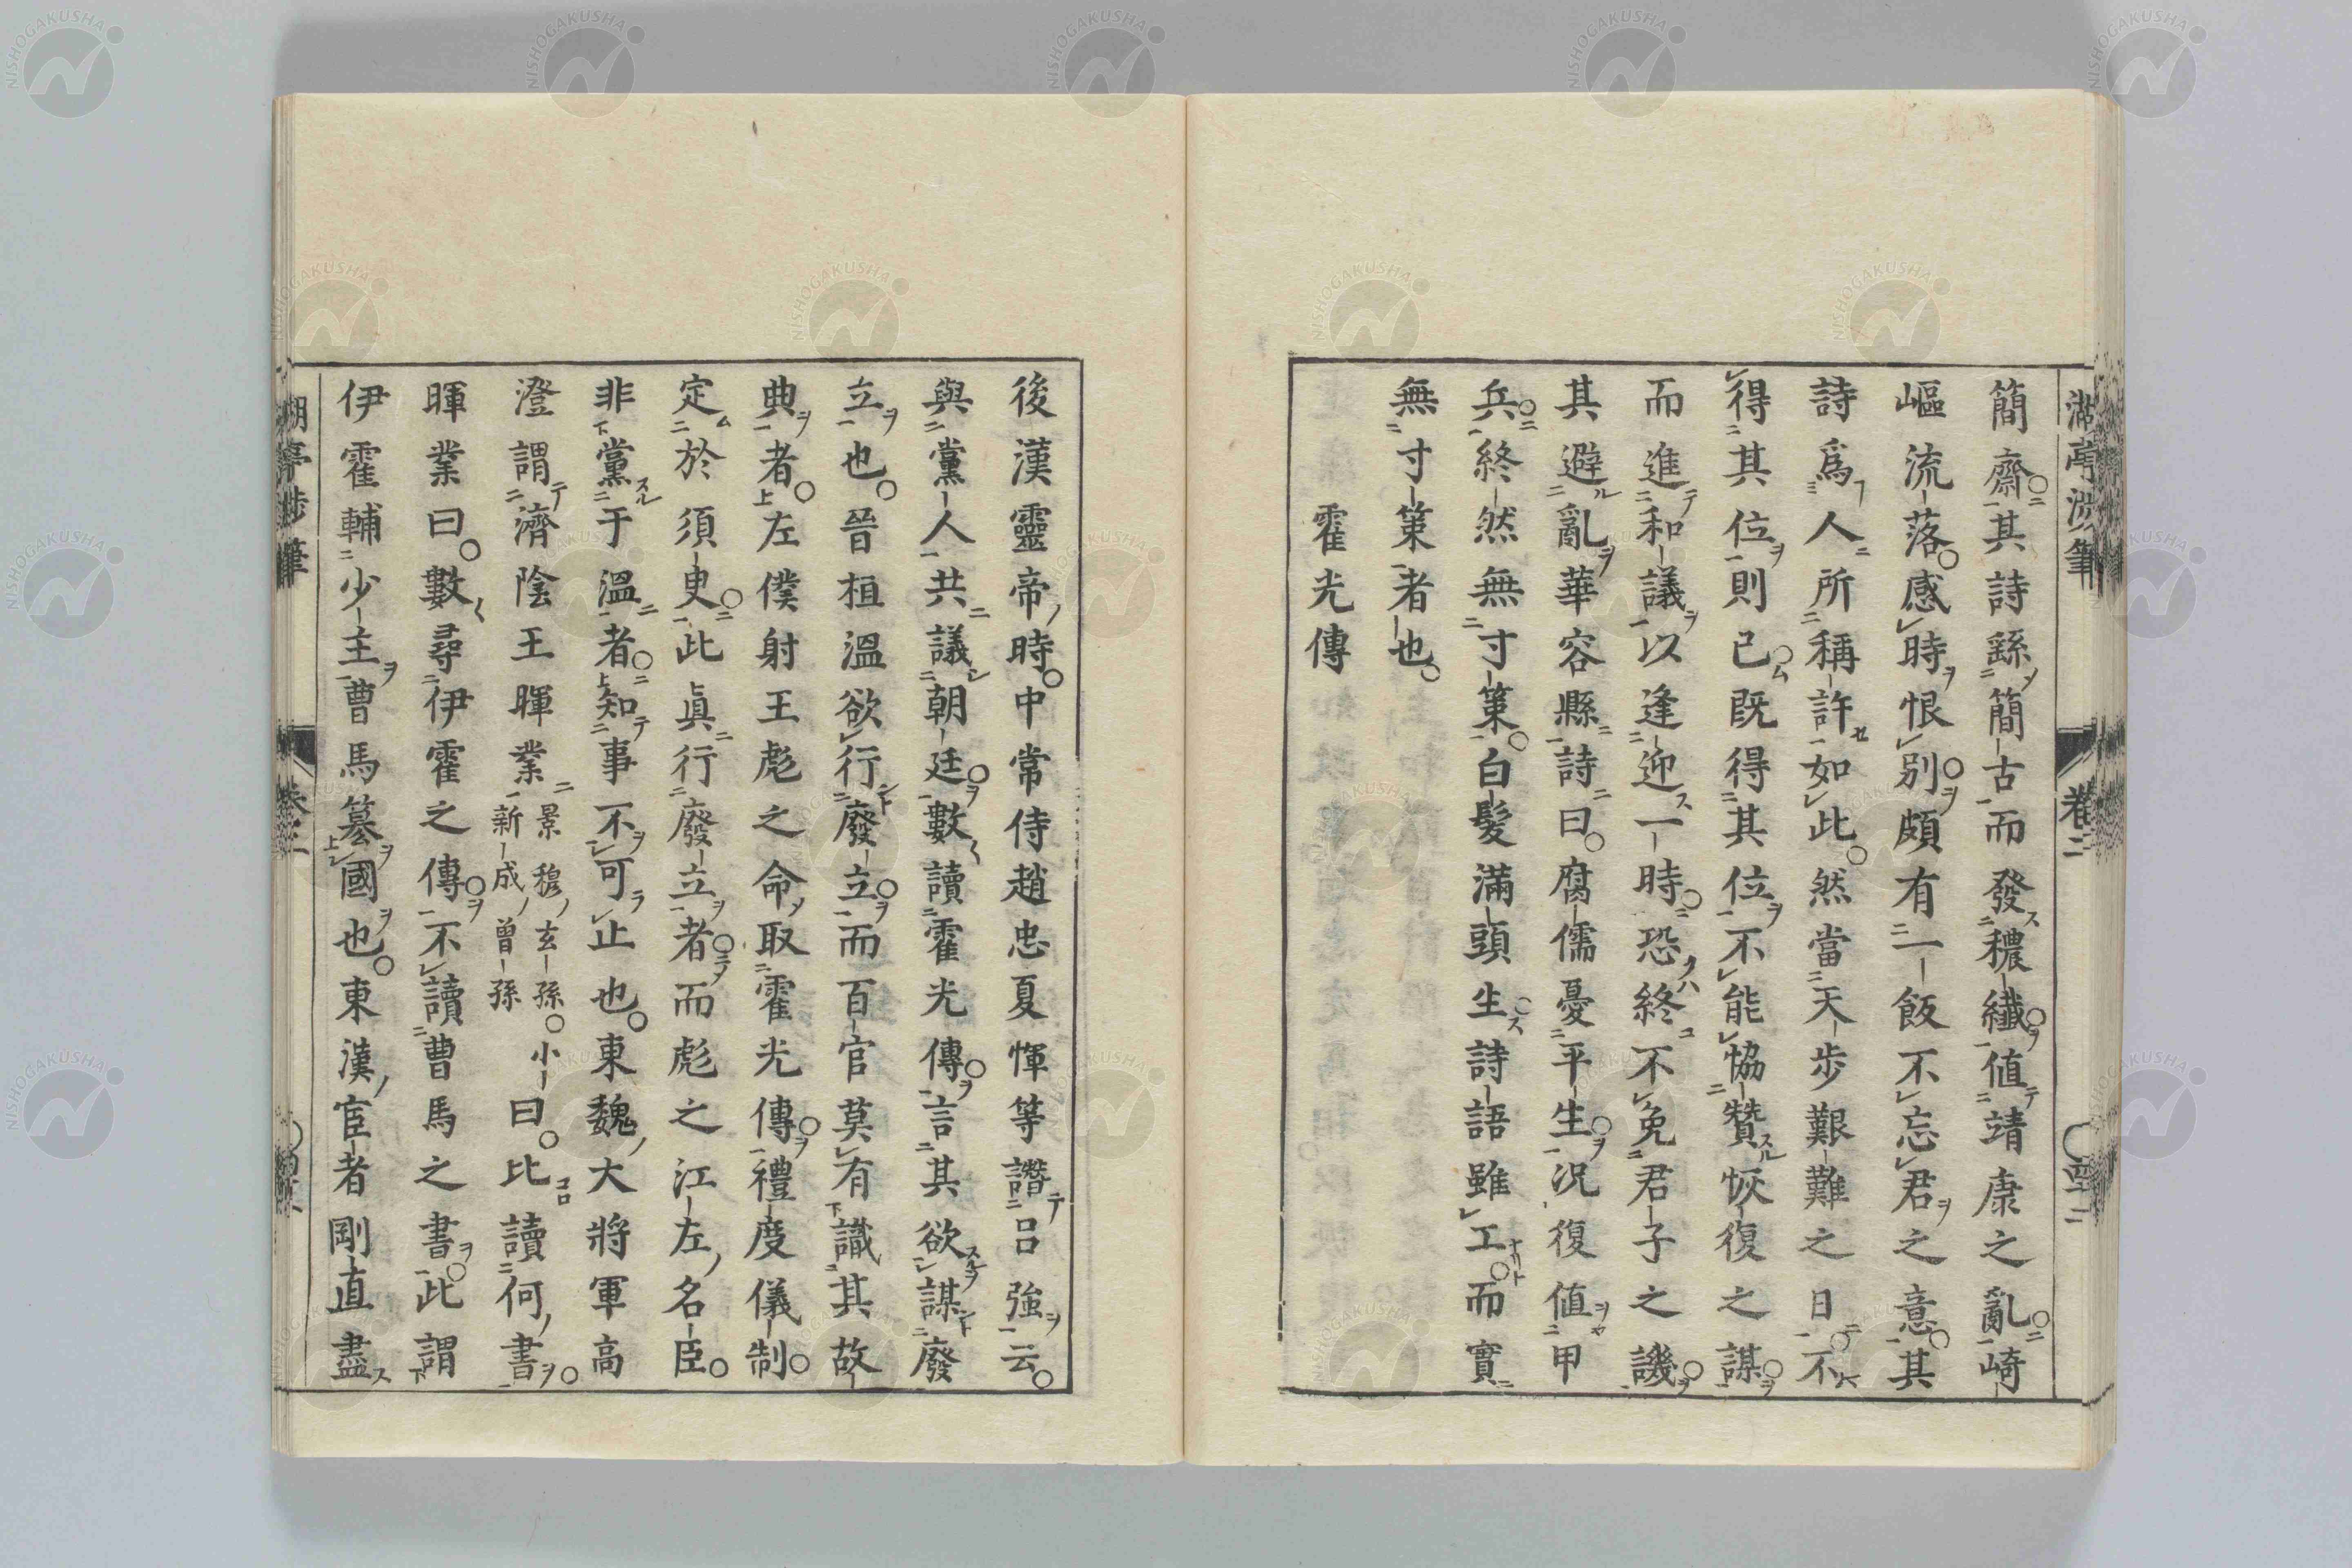 湖亭渉筆 卷二
簡齋其詩繇簡古而發穠纖値靖康之亂崎
嶇流落感時恨別頗有一飯不忘君之意其
詩爲人所稱許如此然當天步艱難之日不
得其位則已既得其位不能恊贊恢復之謀
而進和議以逢迎一時恐終不免君子之譏
其避亂華容縣詩曰腐儒憂平生況復値甲
兵終然無寸策白髮滿頭生詩語雖工而實
無寸策者也
霍光傳
後漢靈帝時中常侍趙忠夏惲等譖呂強云
與黨人共議朝廷數讀霍光傳言其欲謀廢
立也晉桓溫欲行廢立而百官莫有識其故
典者左僕射王彪之命取霍光傳禮度儀制
定於須臾此眞行廢立者而彪之江左名臣
非黨于溫者知事不可止也東魏大將軍高
澄謂濟陰王暉業景穆玄孫小新成曾孫曰比讀何書
暉業曰數尋伊霍之傳不讀曹馬之書此謂
伊霍輔少主曹馬簒國也東漢宦者剛直盡
湖亭渉筆